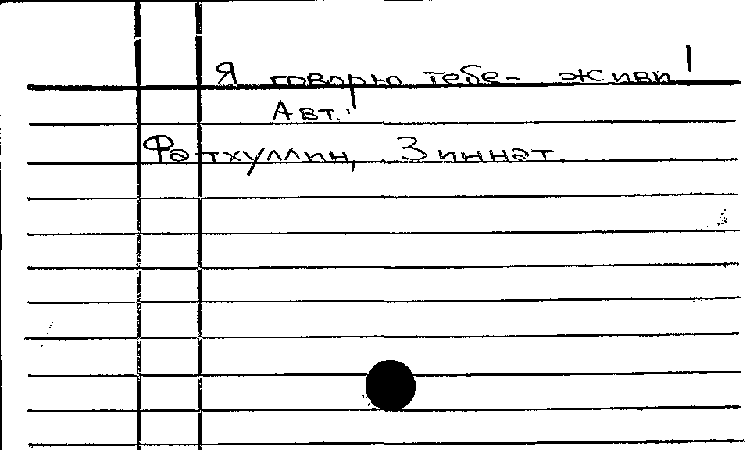 Я говорю тебе - живи!
Авт.:
Фәтхуллин, Зиннәт.